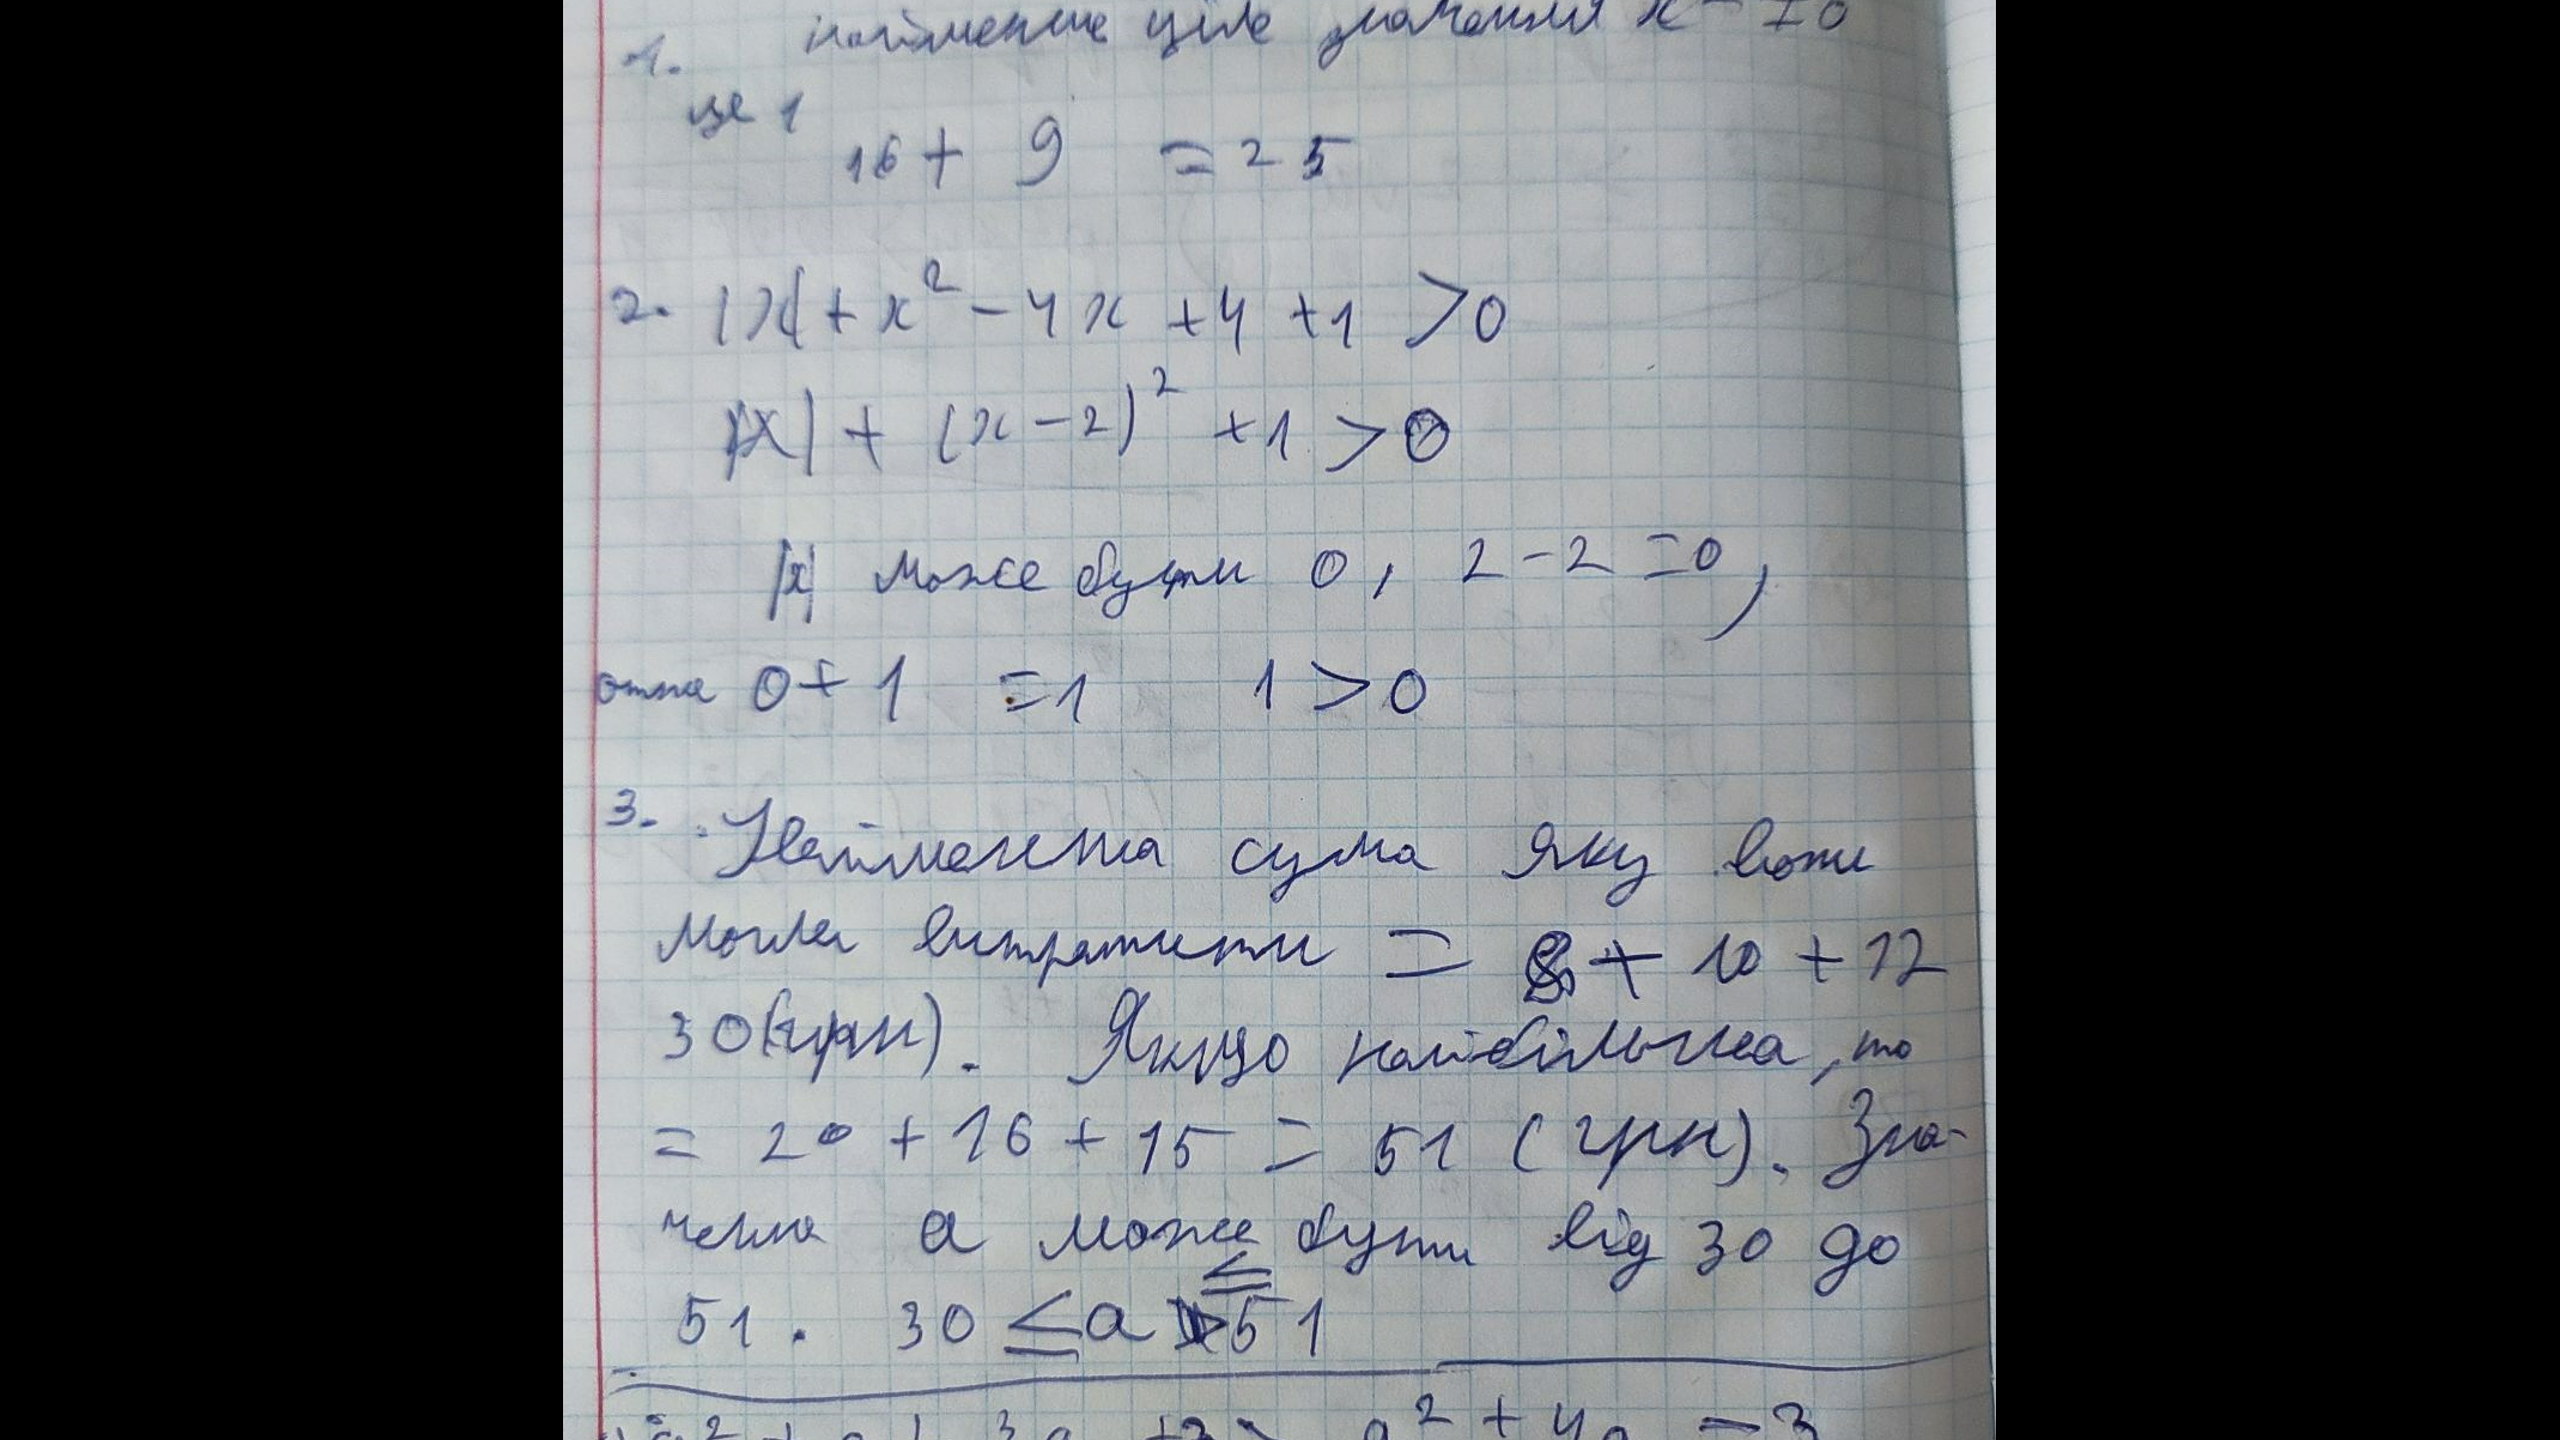 найменше ціле значення x
1.
це 1
16 + 9 = 25
2. |x| + x² - 4x + 4 + 1 > 0
|x| + (x - 2)² + 1 > 0
|x| може бути 0, 2 - 2 = 0,
отже 0 + 1 = 1 1 > 0
3. Найменша сума яку вони
могли витратити = 8 + 10 + 12
30 (грн). Якщо найбільша, то
= 20 + 16 + 15 = 51 (грн). Зна-
чення a може бути від 30 до
≤
51. 30 ≤ a 51
a² + 4a - 3